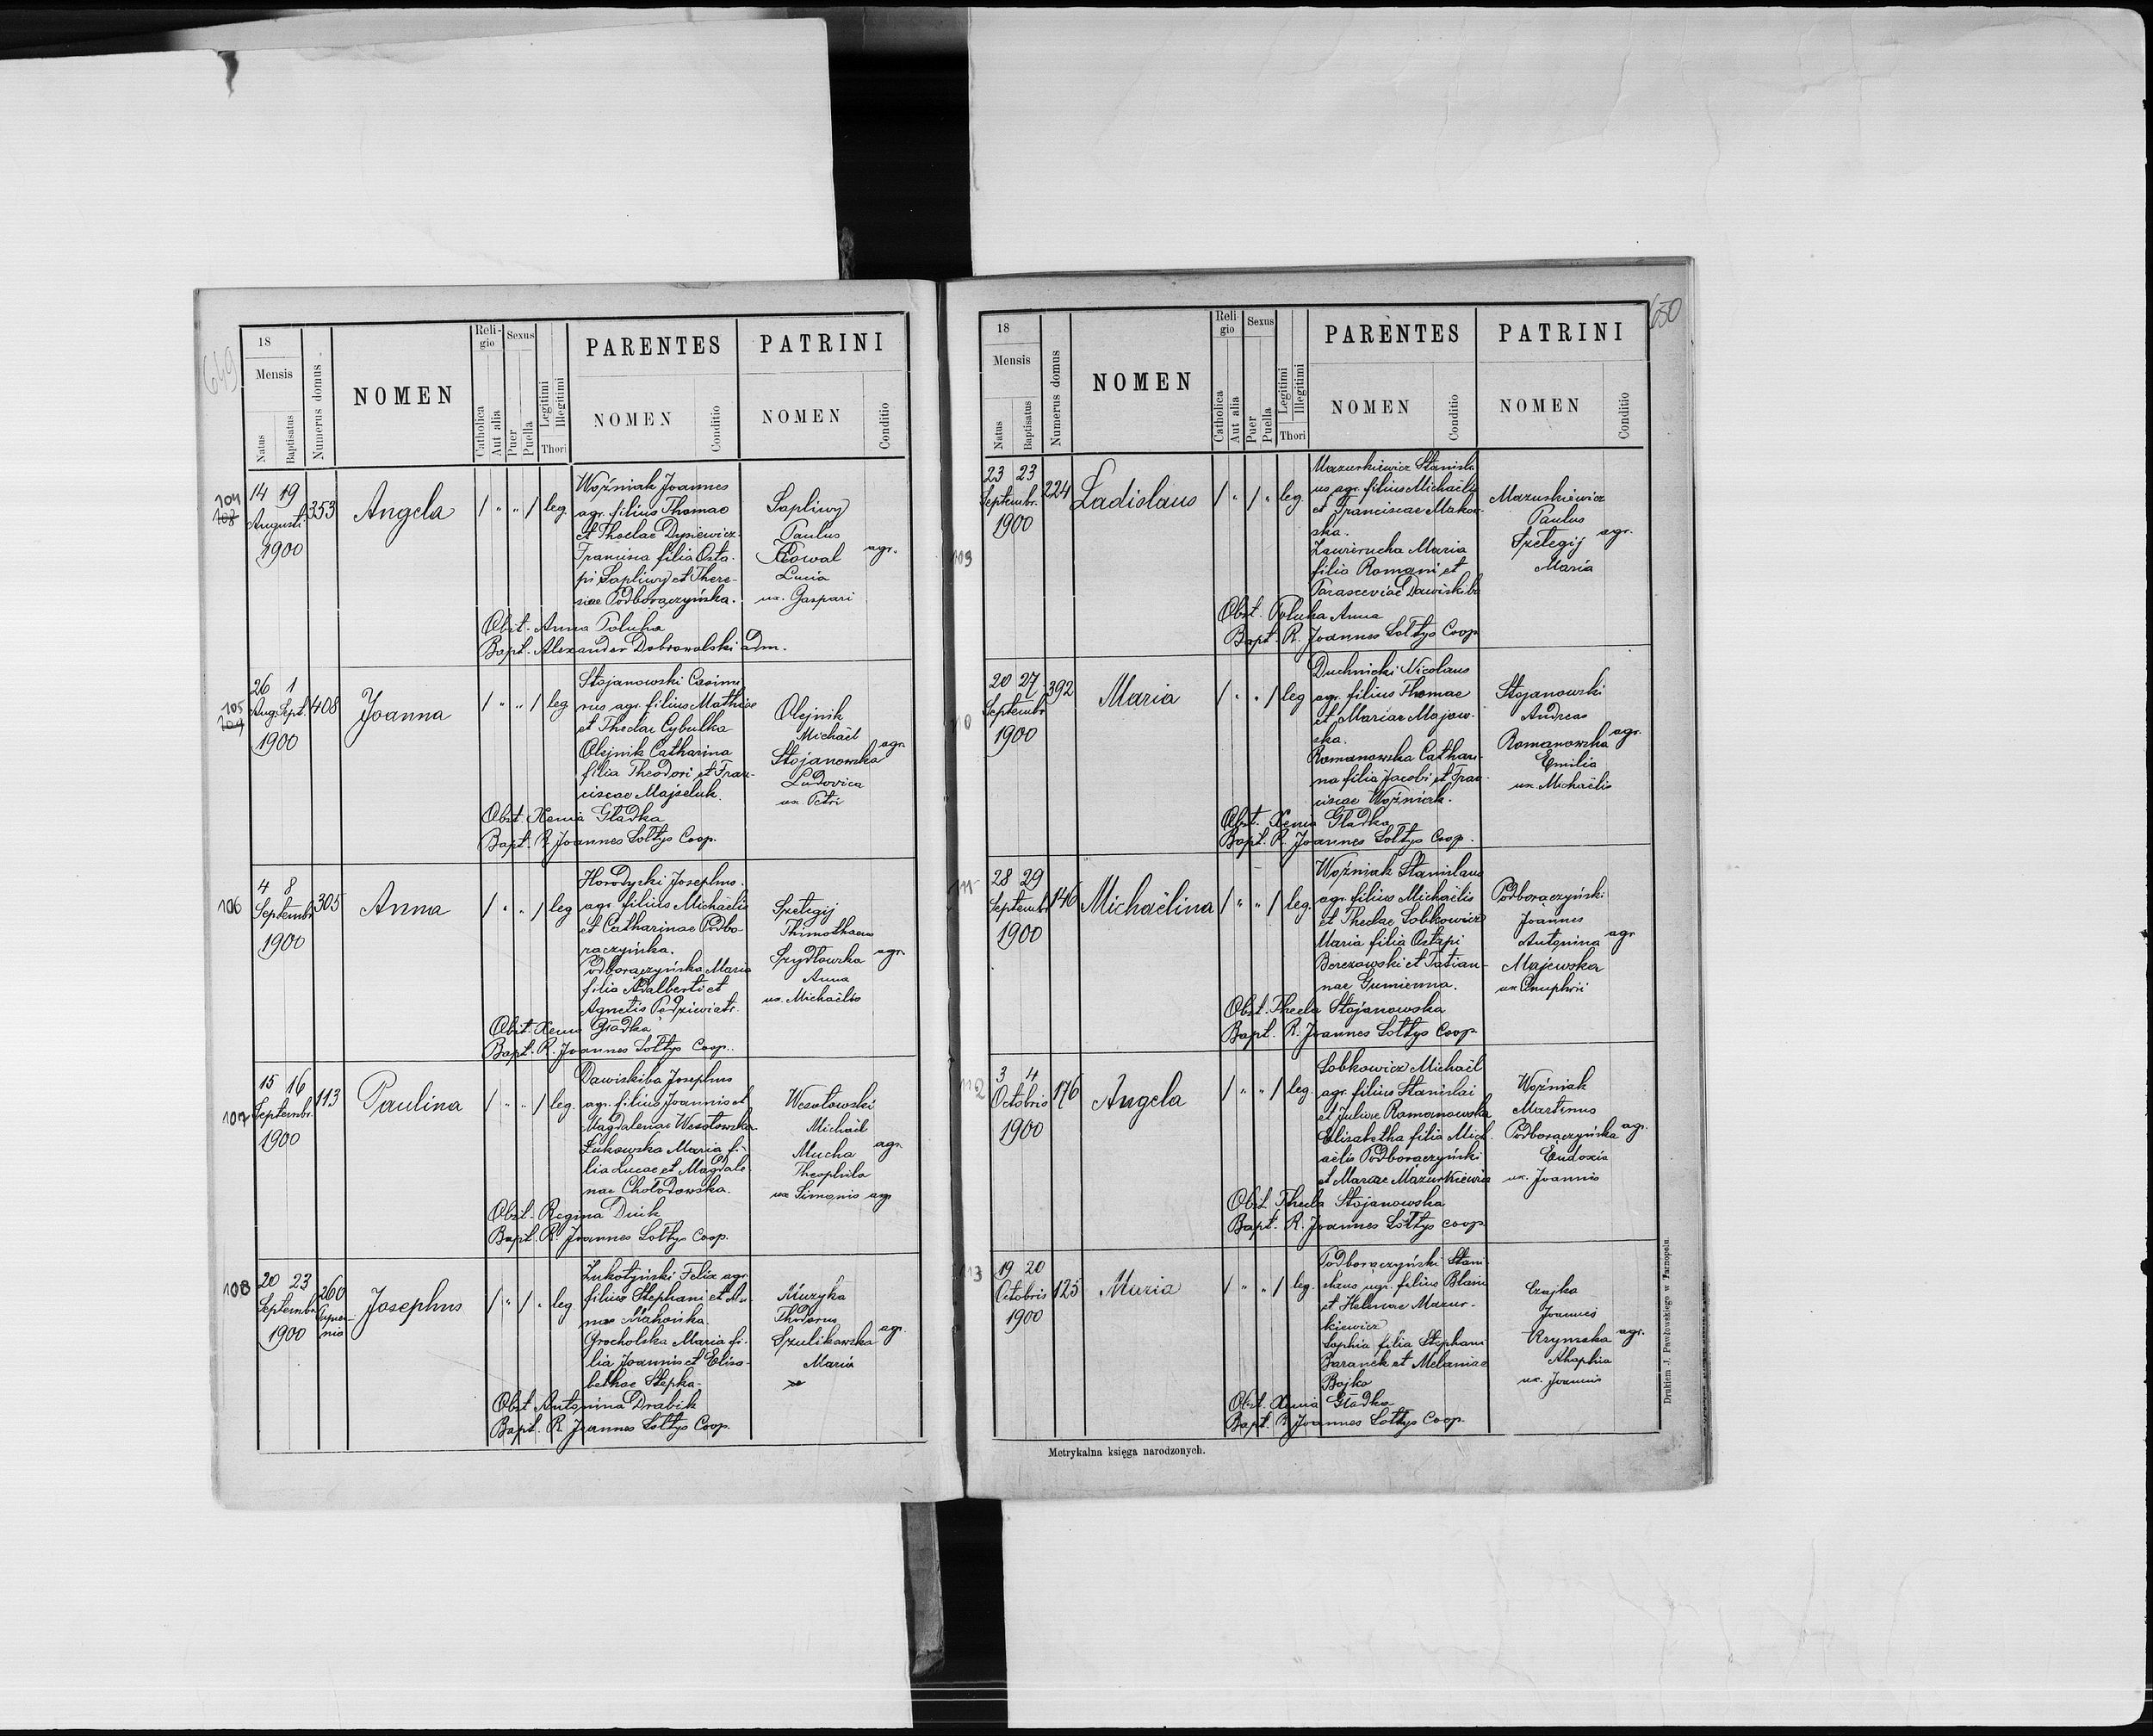 649
18
Mensis
Natus
Baptisatus
Numerus domus
NOMEN
Reli-
gio
Catholica
Aut alia
Sexus
Puer
Puella
Legitimi
Illegitimi
Thori
PARENTES
NOMEN
Conditio
PATRINI
NOMEN
Conditio
104
108
14 19
August.
1900
353
Angela
/ " " / leg.
Woźniak Joannes
agr. filius Thomae
et Theclae Dysiewicz.
Francisca filia Osta-
pi Sapliwy et There-
siae Podborączyńska.
Sapliwy
Paulus
Kowal agr.
Lucia
ux. Gaspari
Obst. Anna Poluha
Bapt. Alexander Dobrowolski adm.
105
109
26 1
Aug. Sept.
1900
408
Joanna
/ " " / leg
Stojanowski Casimi
rus agr. filius Mathiae
et Theclae Cybulka
Olejnik Catharina
filia Theodori et Fran-
ciscae Majseluk.
Olejnik
Michaël
agr.
Stojanowska
Ludovica
ux Petri
Obst. Xenia Gładka
Bapt. R Joannes Sołtys Coop.
106
4 8
Septembr.
1900
305
Anna
/ " " / leg
Horodyski Josephus.
agr. filius Michaëlis
et Catharinae Podbo-
raczyńka.
Podboraczyńska Maria
filia Adalberti et
Agnetis Podziwiatr.
Szelegij
Thimothaeus
Szydłowska agr.
Anna
ux. Michaëlis
Obst. Xenia Gładka
Bapt. R. Joannes Sołtys Coop.
107
15 16
Septembr.
1900
113
Paulina
/ " " / leg.
Dawiskiba Josephus
agr. filius Joannis et
Magdalenae Wesołowska
Łukowska Maria fi-
lia Lucae et Magdale
nae Chołodowska.
Wesołowski
Michaël
Mucha agr.
Theophila
ux Simonis agr
Obst. Regina Duik
Bapt. R. Joannes Sołtys Coop.
108
20 23
Septembr.
1900
260
Josephus
/ " / " leg
Zukotyński Felix agr.
filius Stephani et An-
nae Mahońka.
Grocholska Maria fi-
lia Joannis et Elisa-
bethae Stepka-
Muzyka
Thodorus
Szulikowska agr.
Maria
Obst Antonina Drabik
Bapt. R Joannes Sołtys Coop.
650
18
Mensis
Natus
Baptisatus
Numerus domus
NOMEN
Reli-
gio
Catholica
Aut alia
Sexus
Puer
Puella
Legitimi
Illegitimi
Thori
PARENTES
NOMEN
Conditio
PATRINI
NOMEN
Conditio
109
23 23
Septembr.
1900
224
Ladislaus
/ " / " leg.
Mazurkiewicz Stanisla
us agr. filius Michaëlis
et Franciscae Makow-
ska.
Zawierucha Maria
filia Romani et
Parasceviae Dawiskiba
Mazurkiewicz
Paulus
Szelegij agr.
Maria
Obst. Poluha Anna
Bapt. R. Joannes Sołtys Coop
110
20 27
Septembr
1900
392
Maria
/ " " / leg
Duchnicki Nicolaus
agr. filius Thomae
et Mariae Majew-
ska.
Romanowska Cathari-
na filia Jacobi et Fran-
ciscae Woźniak.
Stojanowski
Andreas
Romanowska agr.
Emilia
ux. Michaëlis
Obst. Xenia Gładka
Bapt. R. Joannes Sołtys Coop.
111
28 29
Septembr
1900
146
Michaëlina
/ " " / leg.
Woźniak Stanislaus
agr. filius Michaëlis
et Theclae Sobkowicz
Maria filia Ostapi
Berezowski et Tatian-
nae Gumienna.
Podborączyński
Joannes
Antonina agr
Majewska
ux Onuphrii
Obst. Thecla Stojanowska
Bapt. R. Joannes Sołtys Coop
112
3 4
Octobris
1900
176
Angela
/ " " / leg.
Sobkowicz Michaël
agr. filius Stanislai
et Juliae Romanowska
Elisabetha filia Mich-
aëlis Podborączyński
et Mariae Mazurkiewicz
Woźniak
Martinus
Podborączyńska agr.
Eudoxia
ux. Joannis
Obst. Thecla Stojanowska
Bapt. R. Joannes Sołtys coop
113
19 20
Octobris
1900
125
Maria
/ " " / leg.
Podborączyński Stani
slaus agr. filius Blasii
et Helenae Mazur-
kiewicz
Sophia filia Stephani
Baranek et Melaniae
Bojko
Czajka
Joannes
Krymska agr.
Ahaphia
ux. Joannis
Obst. Xenia Gładka
Bapt. R Joannes Sołtys Coop.
Metrykalna księga narodzonych.
Drukiem J. Pawłowskiego w Tarnopolu.